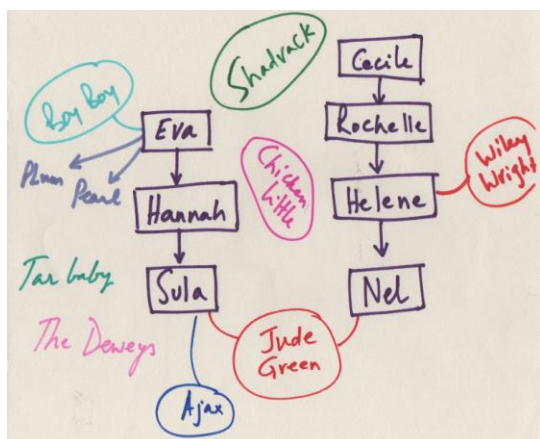 Shadrack
Cecile
Boy Boy
Eva
Rochelle
Plum
Pearl
Chicken
Little
Wiley
Wright
Hannah
Helene
Tar baby
Sula
Nel
The Deweys
Jude
Green
Ajax